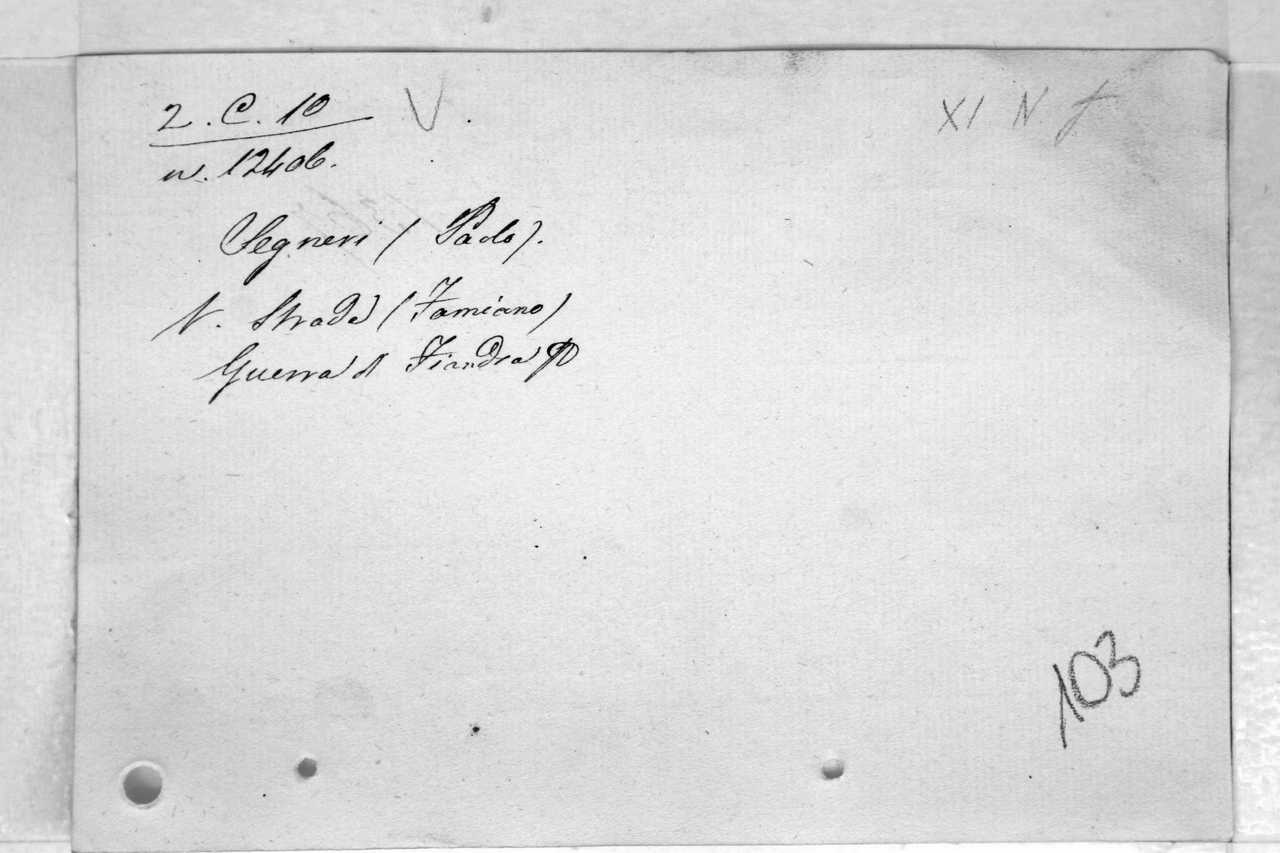 2. C. 10 V.
XI N f
n. 12406.
Segneri (Paolo).
V. Strada (Famiano)
Guerra di Fiandra
103